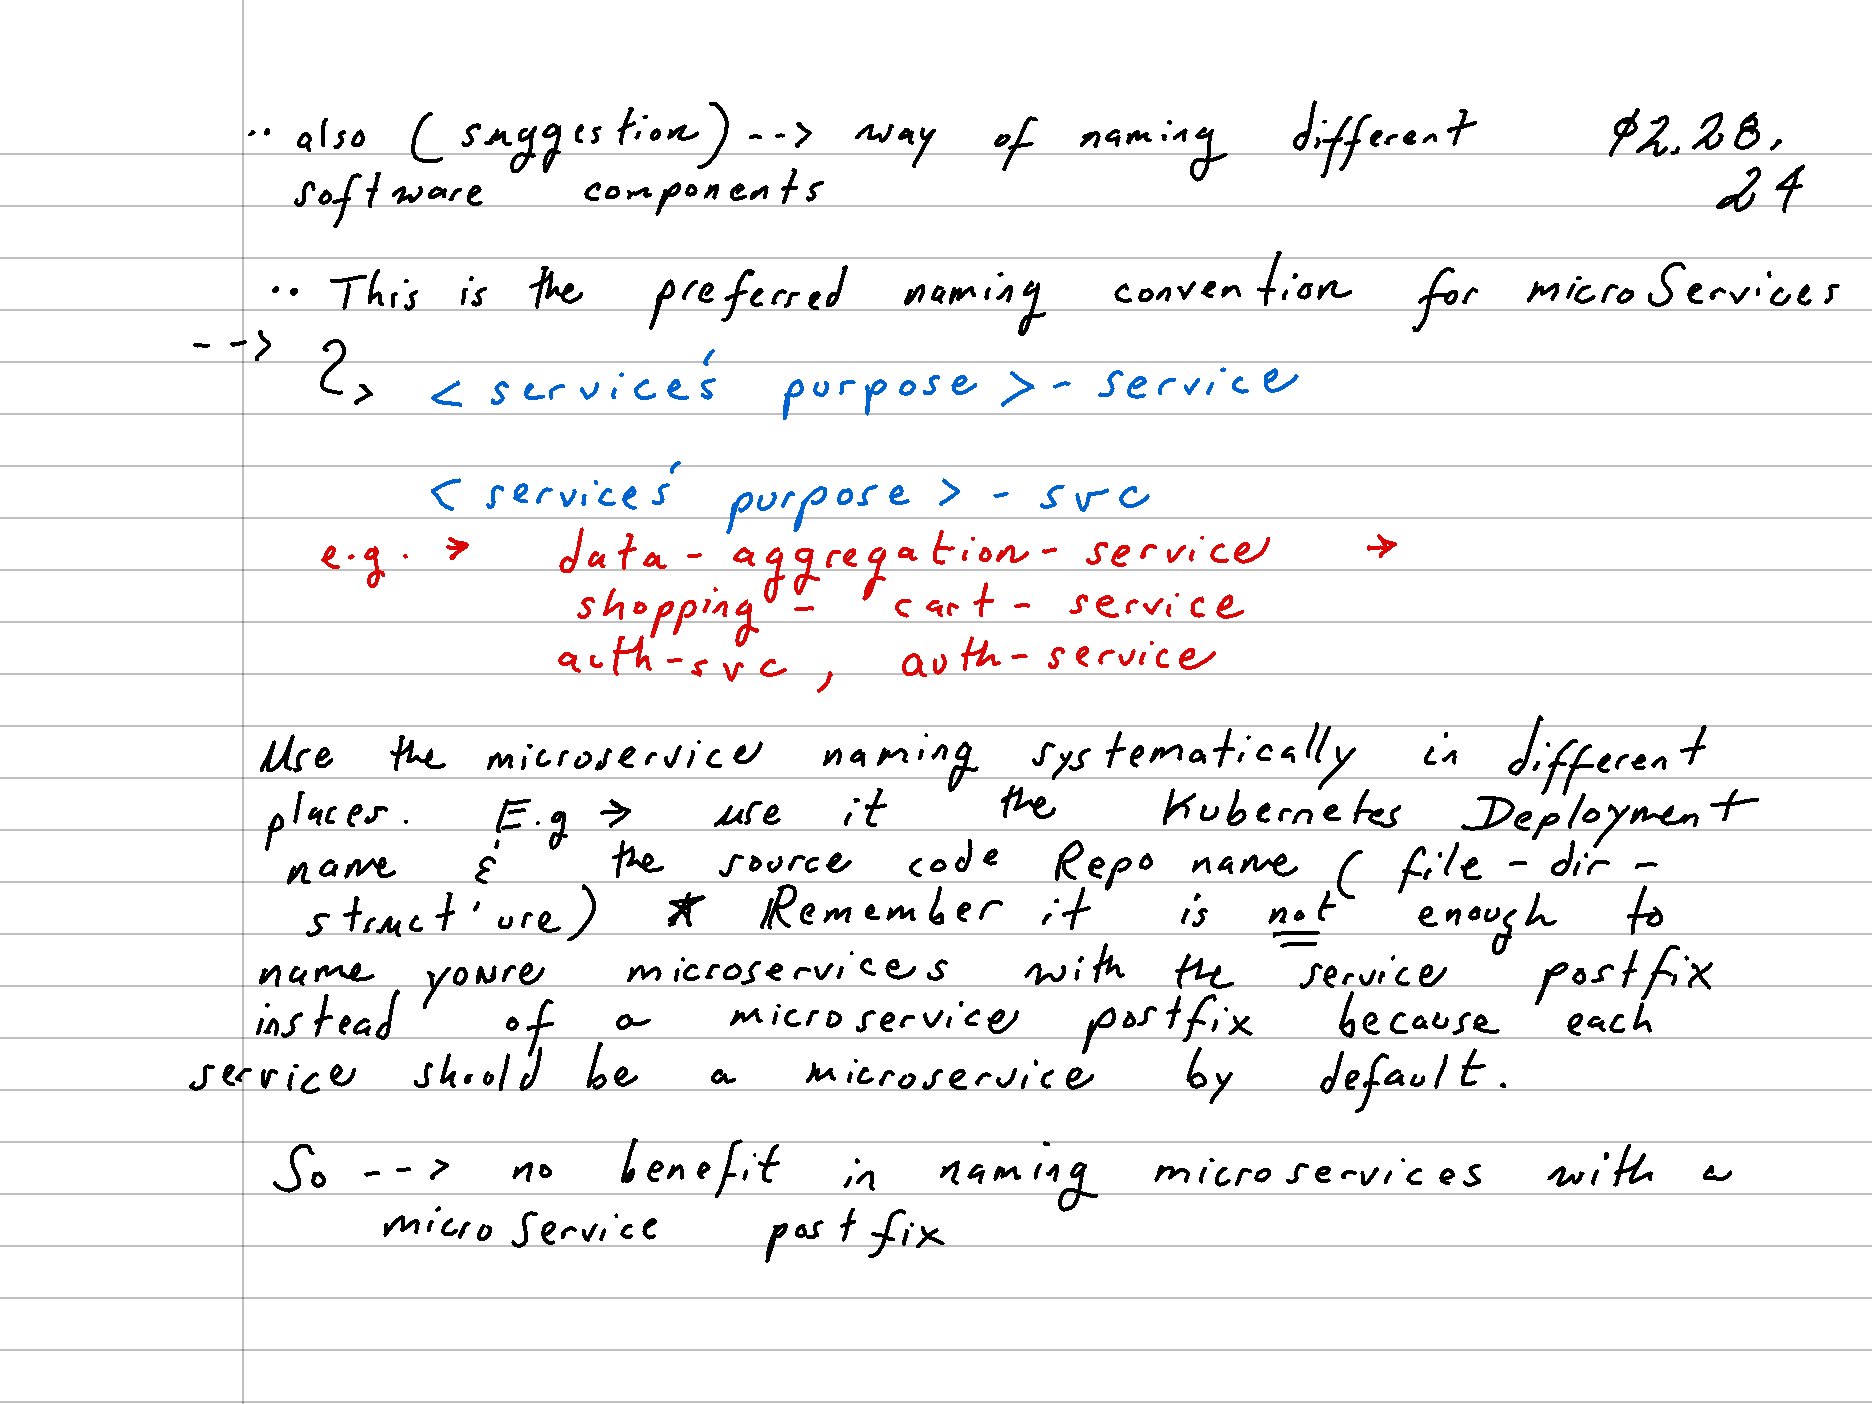 ·· also (suggestion) --> way of naming different 02.28.
software components 24
·· This is the preferred naming convention for microServices
-->
<service's purpose>-service
<service's purpose>-svc
e.g. → data-aggregation-service →
shopping-cart-service
auth-svc, auth-service
Use the microservice naming systematically in different
places. E.g → use it the Kubernetes Deployment
name & the source code Repo name (file-dir-
struct'ure) * Remember it is not enough to
name youre microservices with the service postfix
instead of a microservice postfix because each
service should be a microservice by default.
So --> no benefit in naming microservices with a
microService postfix